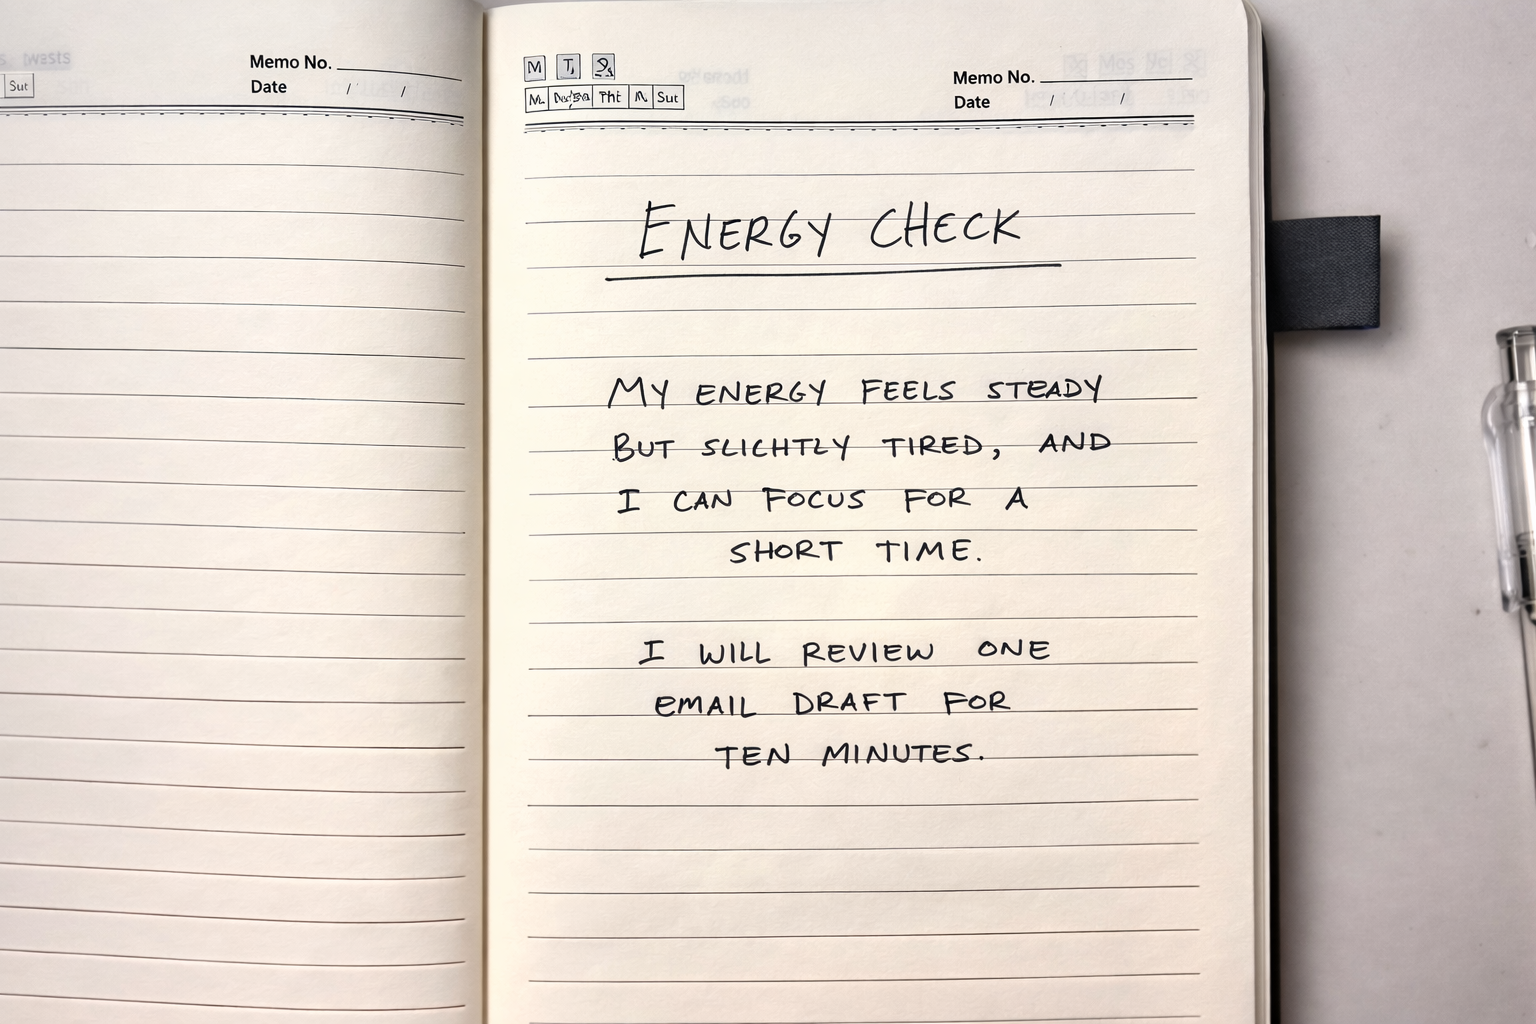 Sut
Memo No.
Date / /
M T
Tht Sut
Memo No.
Date / /
ENERGY CHECK
MY ENERGY FEELS STEADY
BUT SLICHTLY TIRED, AND
I CAN FOCUS FOR A
SHORT TIME.
I WILL REVIEW ONE
EMAIL DRAFT FOR
TEN MINUTES.